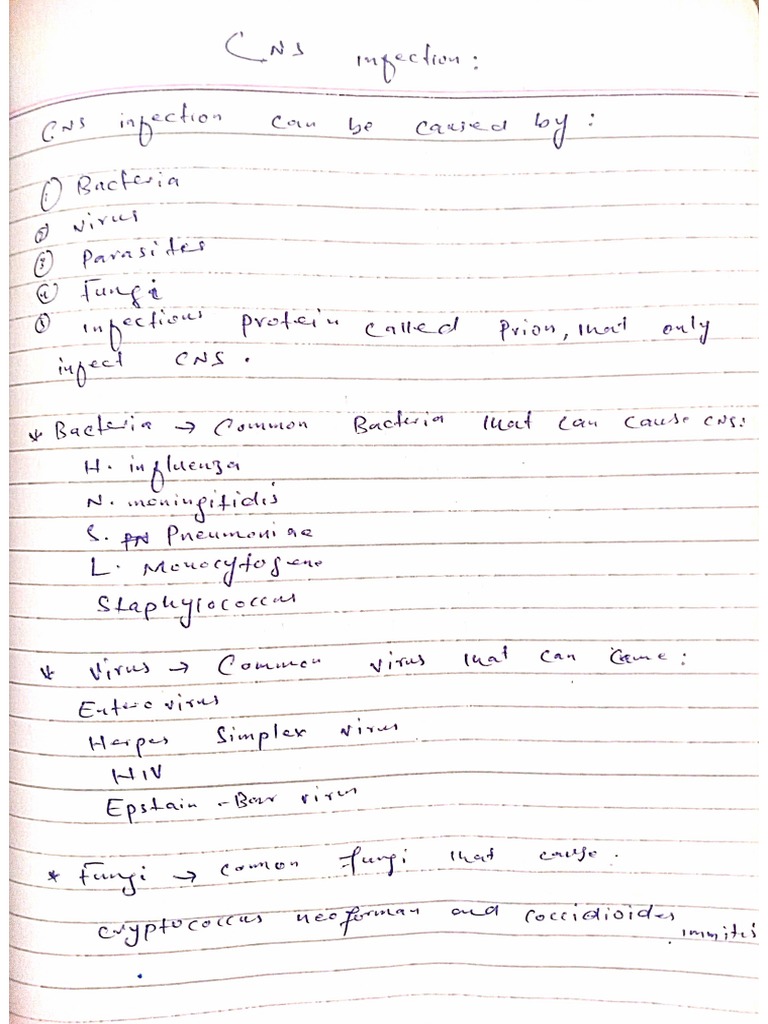 CNS infection:
CNS infection can be caused by:
① Bacteria
② Virus
③ Parasites
④ Fungi
⑤ infectious protein called Prion, that only
infect CNS.
* Bacteria → Common Bacteria that can cause CNS:
H. influenza
N. meningitidis
S. Pneumoniae
L. Monocytogene
Staphylococcus
* Virus → Common virus that can cause:
Entero virus
Herpes Simplex virus
HIV
Epstain-Barr virus
* Fungi → common fungi that cause.
cryptococcus neoforman and coccidioides
immitis